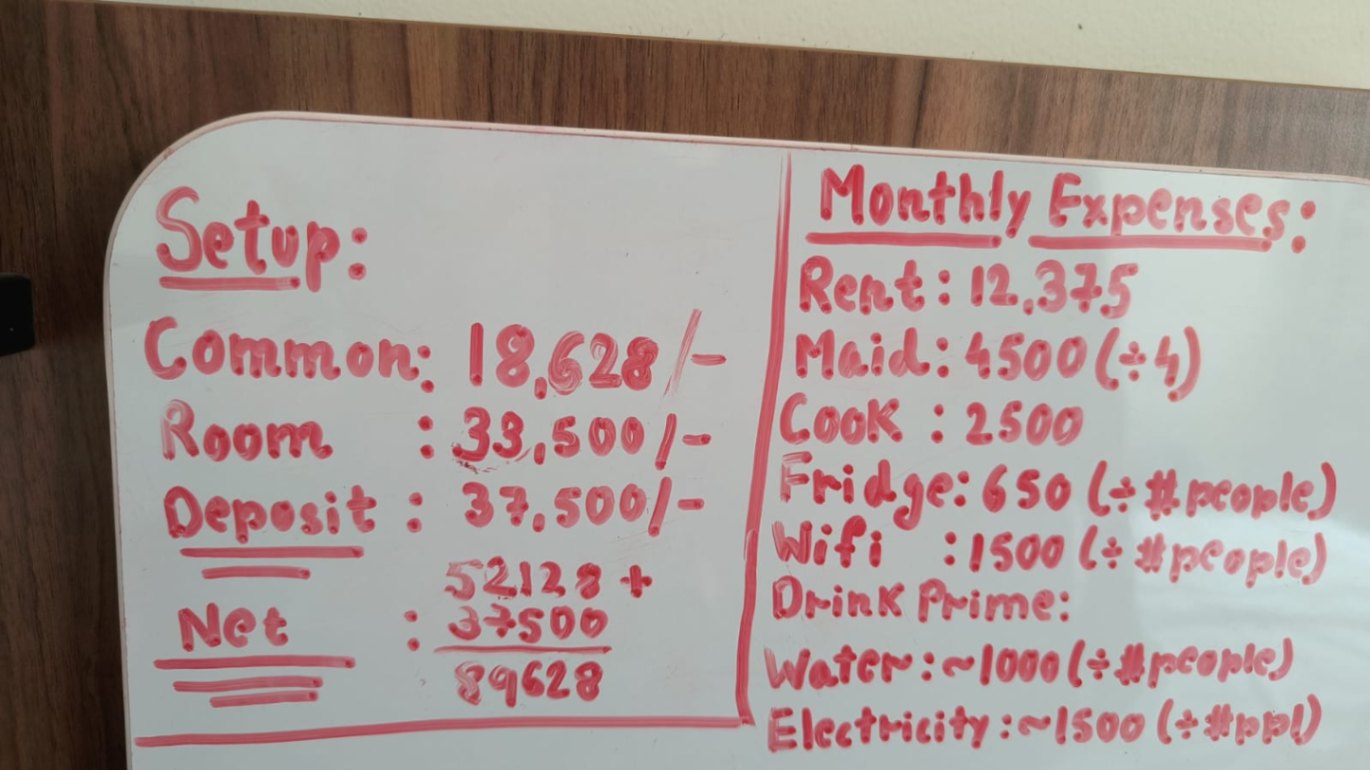 Setup:
Common: 18,628/-
Room : 33,500/-
Deposit : 37,500/-
52128 +
Net : 37500
89628
Monthly Expenses:
Rent: 12,375
Maid: 4500 (÷4)
Cook : 2500
Fridge: 650 (÷ #people)
Wifi : 1500 (÷ #people)
Drink Prime:
Water: ~1000 (÷ #people)
Electricity: ~1500 (÷ #ppl)